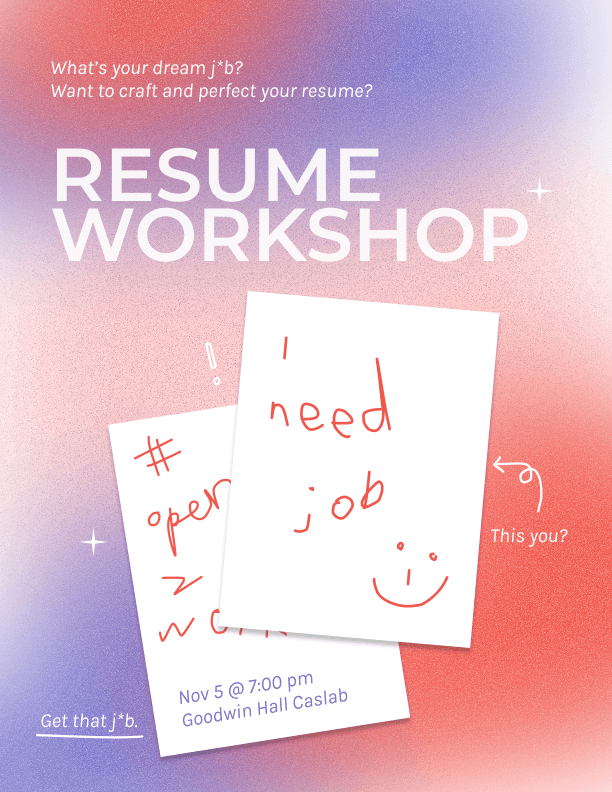 What's your dream j*b?
Want to craft and perfect your resume?
RESUME
WORKSHOP
!
I
need
job
#
open
2
work
This you?
Nov 5 @ 7:00 pm
Goodwin Hall Caslab
Get that j*b.